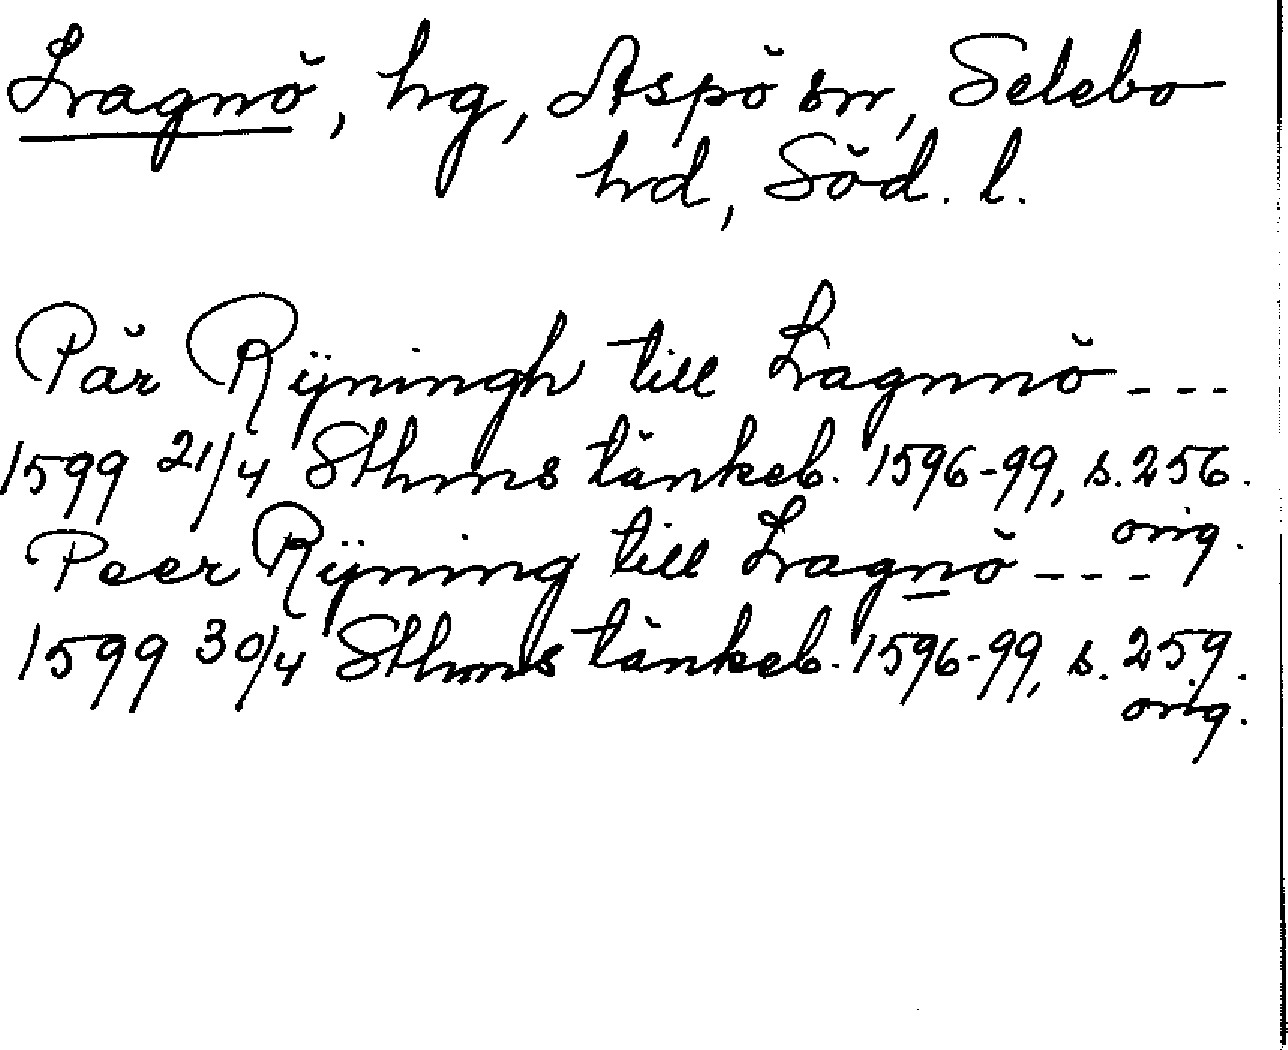 Lagnö, hg, Aspö sn, Selebo
hd, Söd. l.
Pär Rÿningh till Lagnnö ---
1599 21/4 Sthms tänkeb. 1596-99, s. 256.
orig.
Peer Rÿning till Lagnö ---
1599 30/4 Sthms tänkeb. 1596-99, s. 259.
orig.